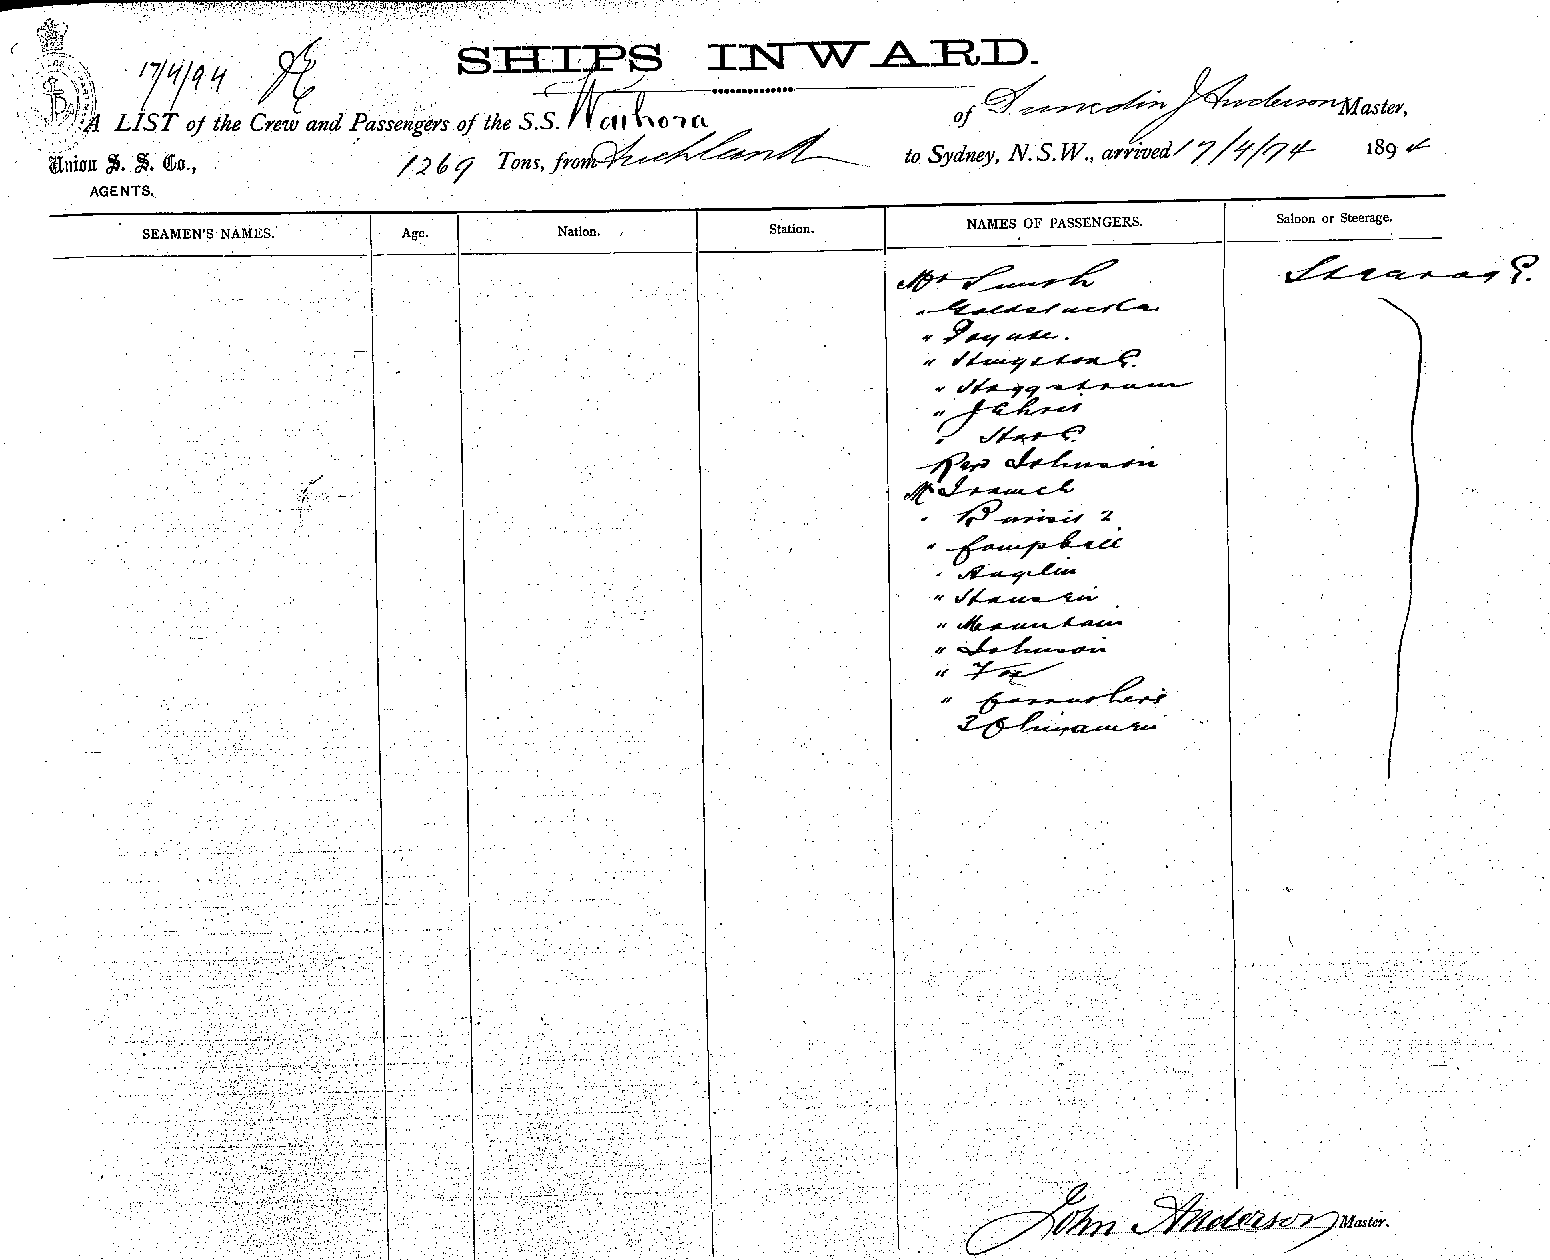 SHIPS INWARD.
17/4/94
A LIST of the Crew and Passengers of the S.S. Waihora of Dunedin J Anderson Master,
Union S. S. Co., 1269 Tons, from Auckland to Sydney, N.S.W., arrived 17/4/94 1894
AGENTS.
SEAMEN'S NAMES. Age. Nation. Station. NAMES OF PASSENGERS. Saloon or Steerage.
Mr Smith Steerage
"
" Payne.
" Kingston
" Haggstrom
"
"
Rev Johnson
Mr
" 2
" Campbell
" Anglin
" Hansen
" Mountain
" Johnson
" Fox
" Carruthers
2 Chinamen
John Anderson Master.